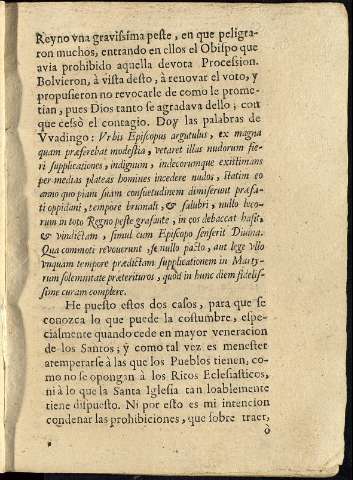 Reyno vna gravissima peste, en que peligra-
ron muchos, entrando en ellos el Obispo que
avia prohibido aquella devota Procession.
Bolvieron, à vista desto, à renovar el voto, y
propusieron no revocarle de como le prome-
tian, pues Dios tanto se agradava dello; con
que cessò el contagio. Doy las palabras de
Vvadingo: Vrbis Episcopus argutulus, ex magna
quam præferebat modestia, vetaret illas nudorum fie-
ri supplicationes, indignum, indecorumque existimans
per medias plateas homines incedere nudos, statim eo
anno quo piam suam consuetudinem dimiserunt præfa-
ti oppidani, tempore brumali, & salubri, nullo loco-
rum in toto Regno peste grasante, in eos debaccat hasit,
& vindictam, simul cum Episcopo senserit Diuina.
Qua commoti revouerunt, se nullo pacto, aut lege vllo
vnquam tempore prædictam supplicationem in Marty-
rum solemnitate præterituros, quod in hunc diem fidelis-
sime curam complere.
He puesto estos dos casos, para que se
conozca lo que puede la costumbre, espe-
cialmente quando cede en mayor veneracion
de los Santos; y como tal vez es menester
atemperarse à las que los Pueblos tienen, co-
mo no se opongan à los Ritos Eclesiasticos,
ni à lo que la Santa Iglesia tan loablemente
tiene dispuesto. Ni por esto es mi intencion
condenar las prohibiciones, que sobre traer,
ò